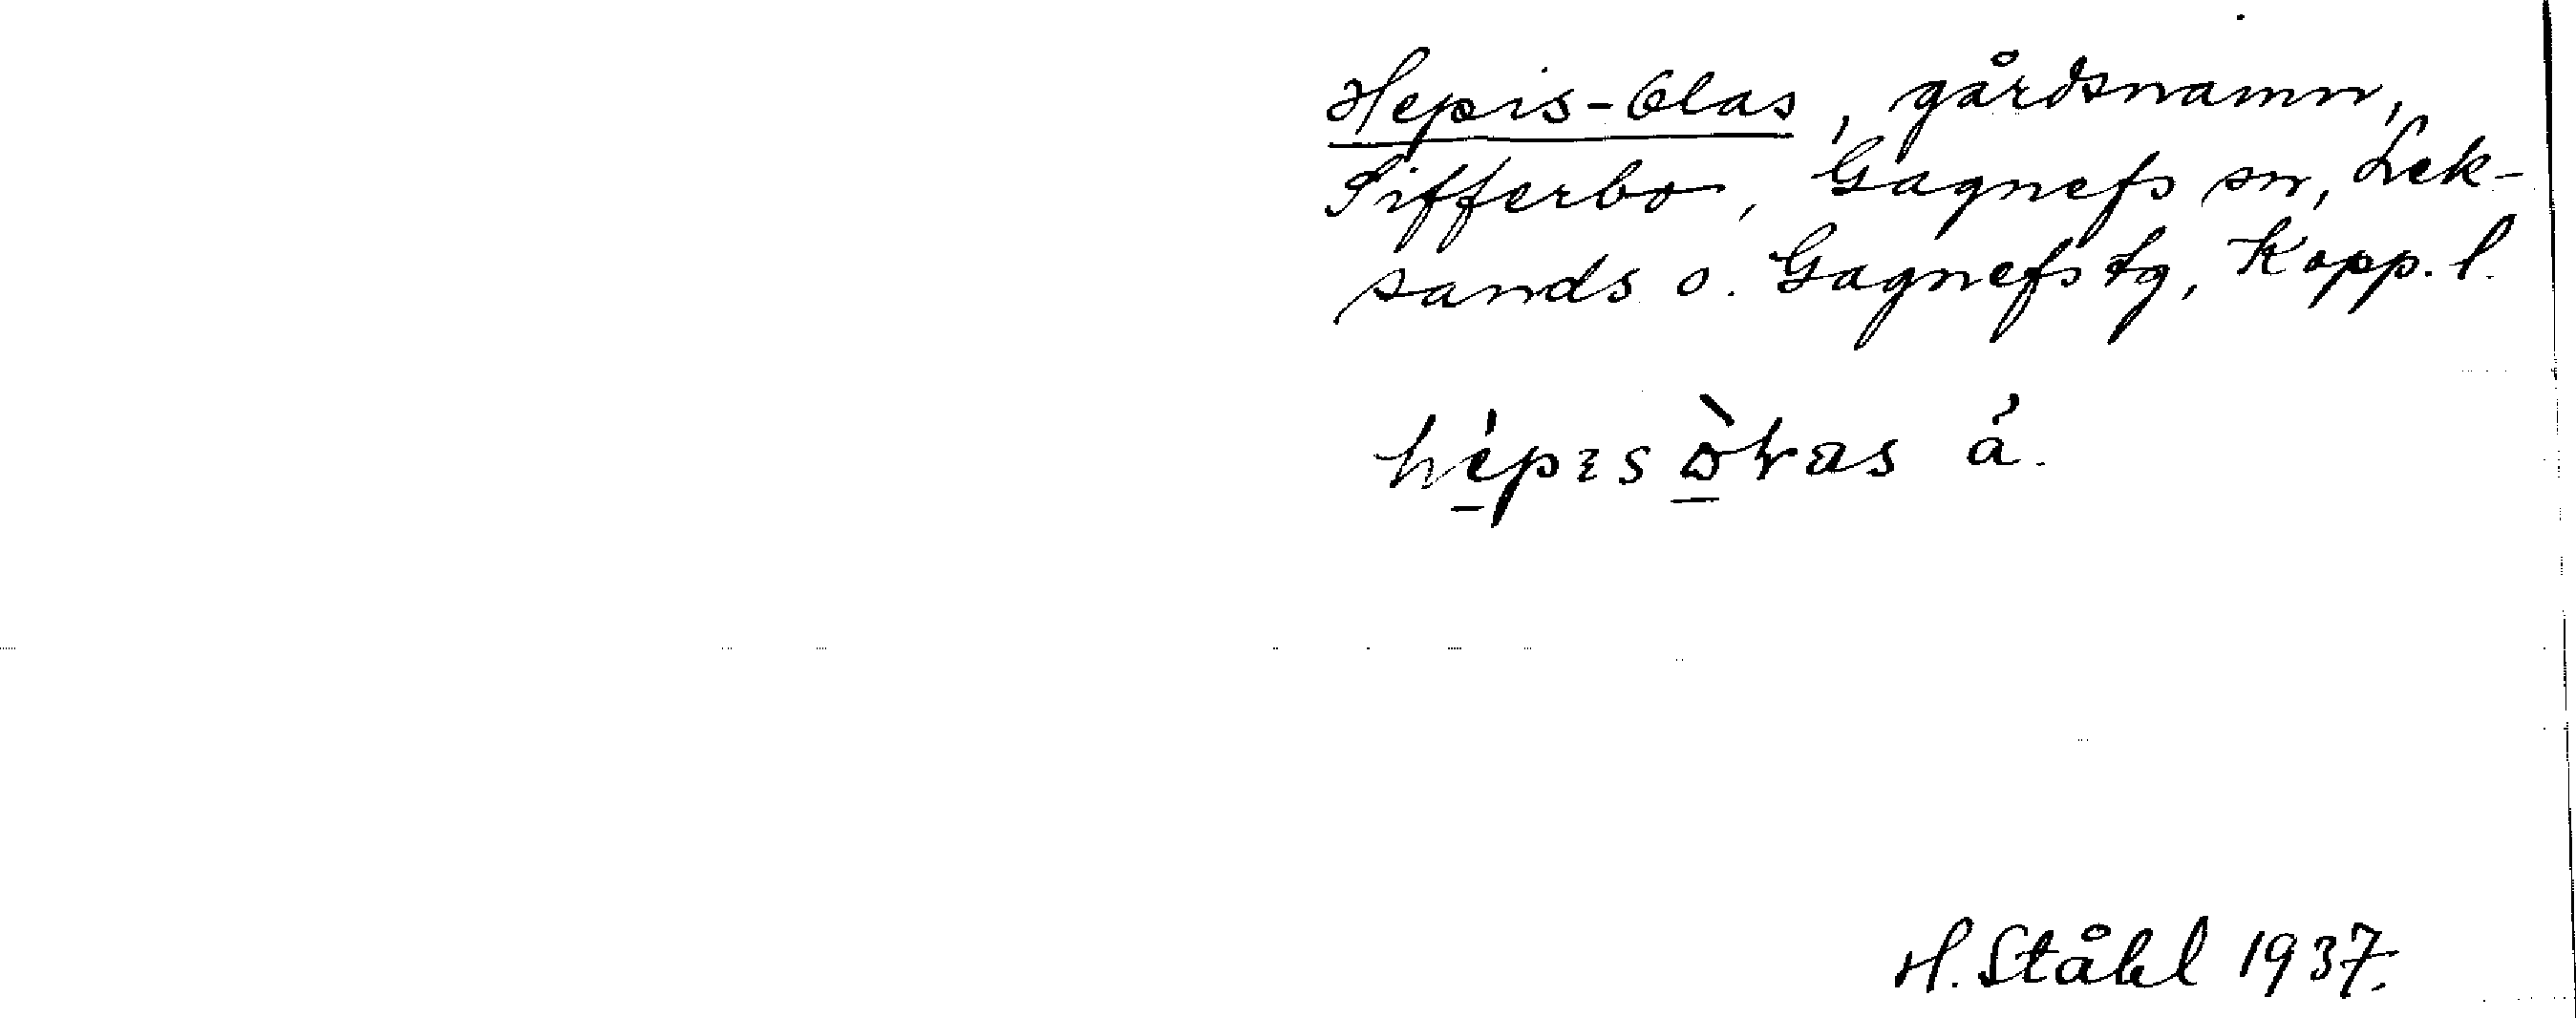 Hepis-Olas, gårdsnamn,
Sifferbo, Gagnefs sn, Lek-
sands o. Gagnefs tg, Kopp. l.
H. Ståhl 1937.